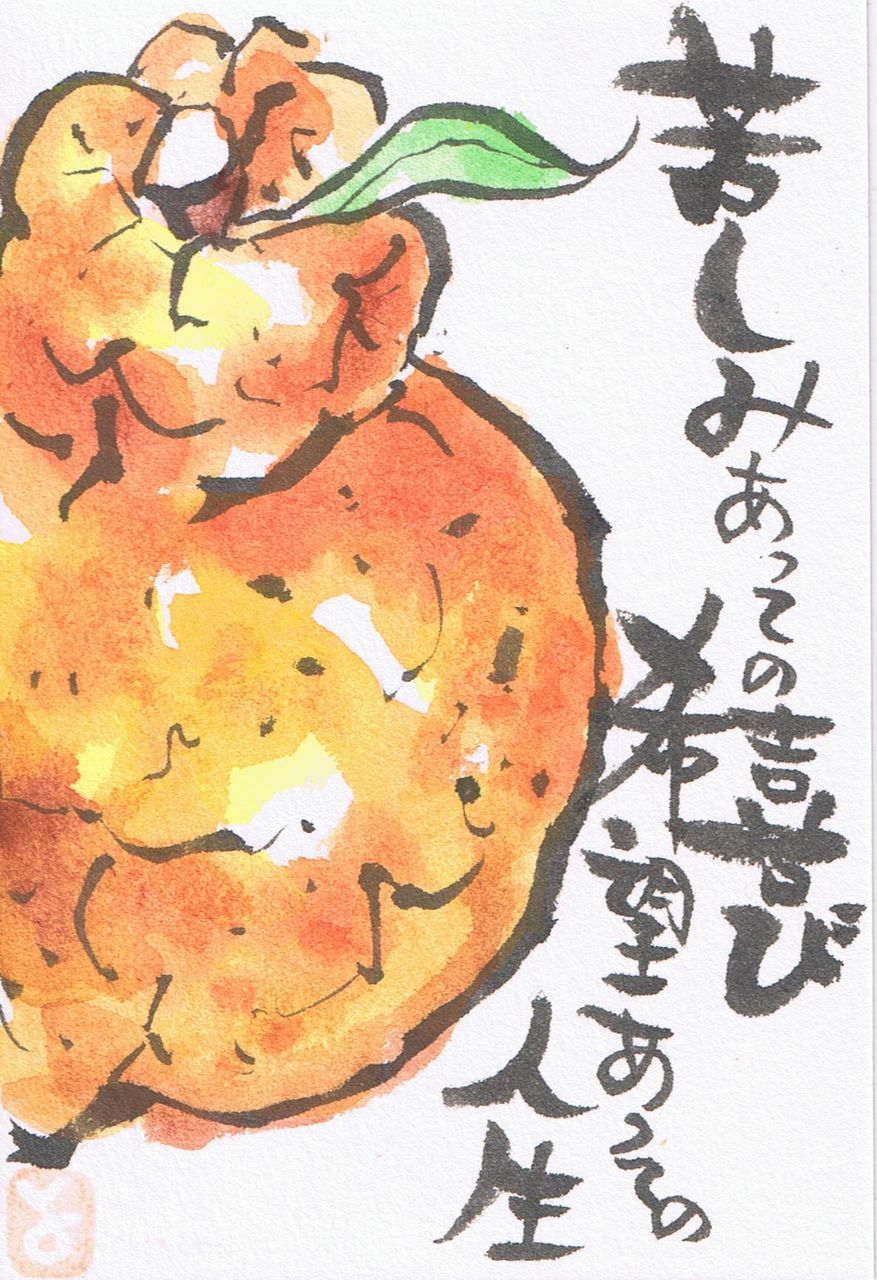 苦しみあっての喜び
希望あっての
人生
よ